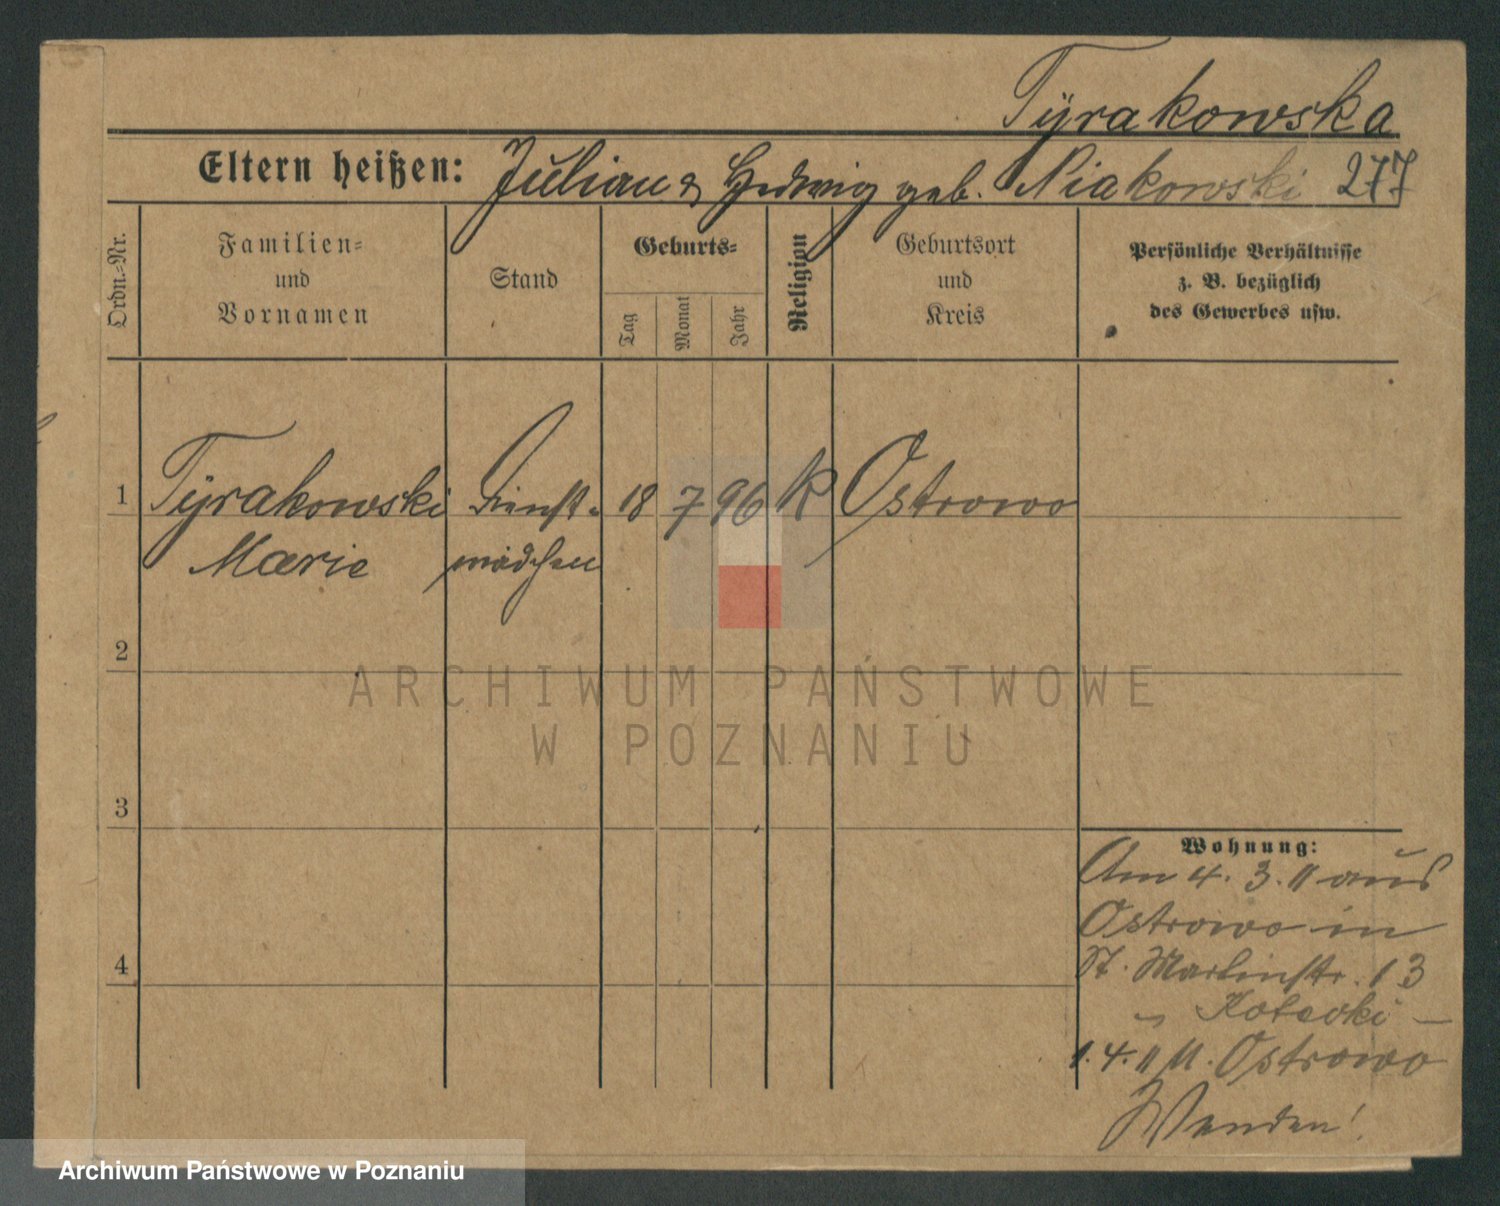 Tÿrakowska
Eltern heißen: Julian & Hedwig geb. Niakowski 277
Ordn.=Nr.
Familien=
und
Vornamen
Stand
Geburts=
Tag
Monat
Jahr
Religion
Geburtsort
und
Kreis
Persönliche Verhältnisse
z. B. bezüglich
des Gewerbes usw.
1 Tÿrakowski Dienst= 18 7 96 K Ostrowo
Marie mädchen
2
ARCHIWUM PAŃSTWOWE
W POZNANIU
3
Wohnung:
Am 4. 3. 11 aus
Ostrowo in
4
St. Martinstr. 13
Kotecki
1. 4. 11 Ostrowo
Wenden!
Archiwum Państwowe w Poznaniu